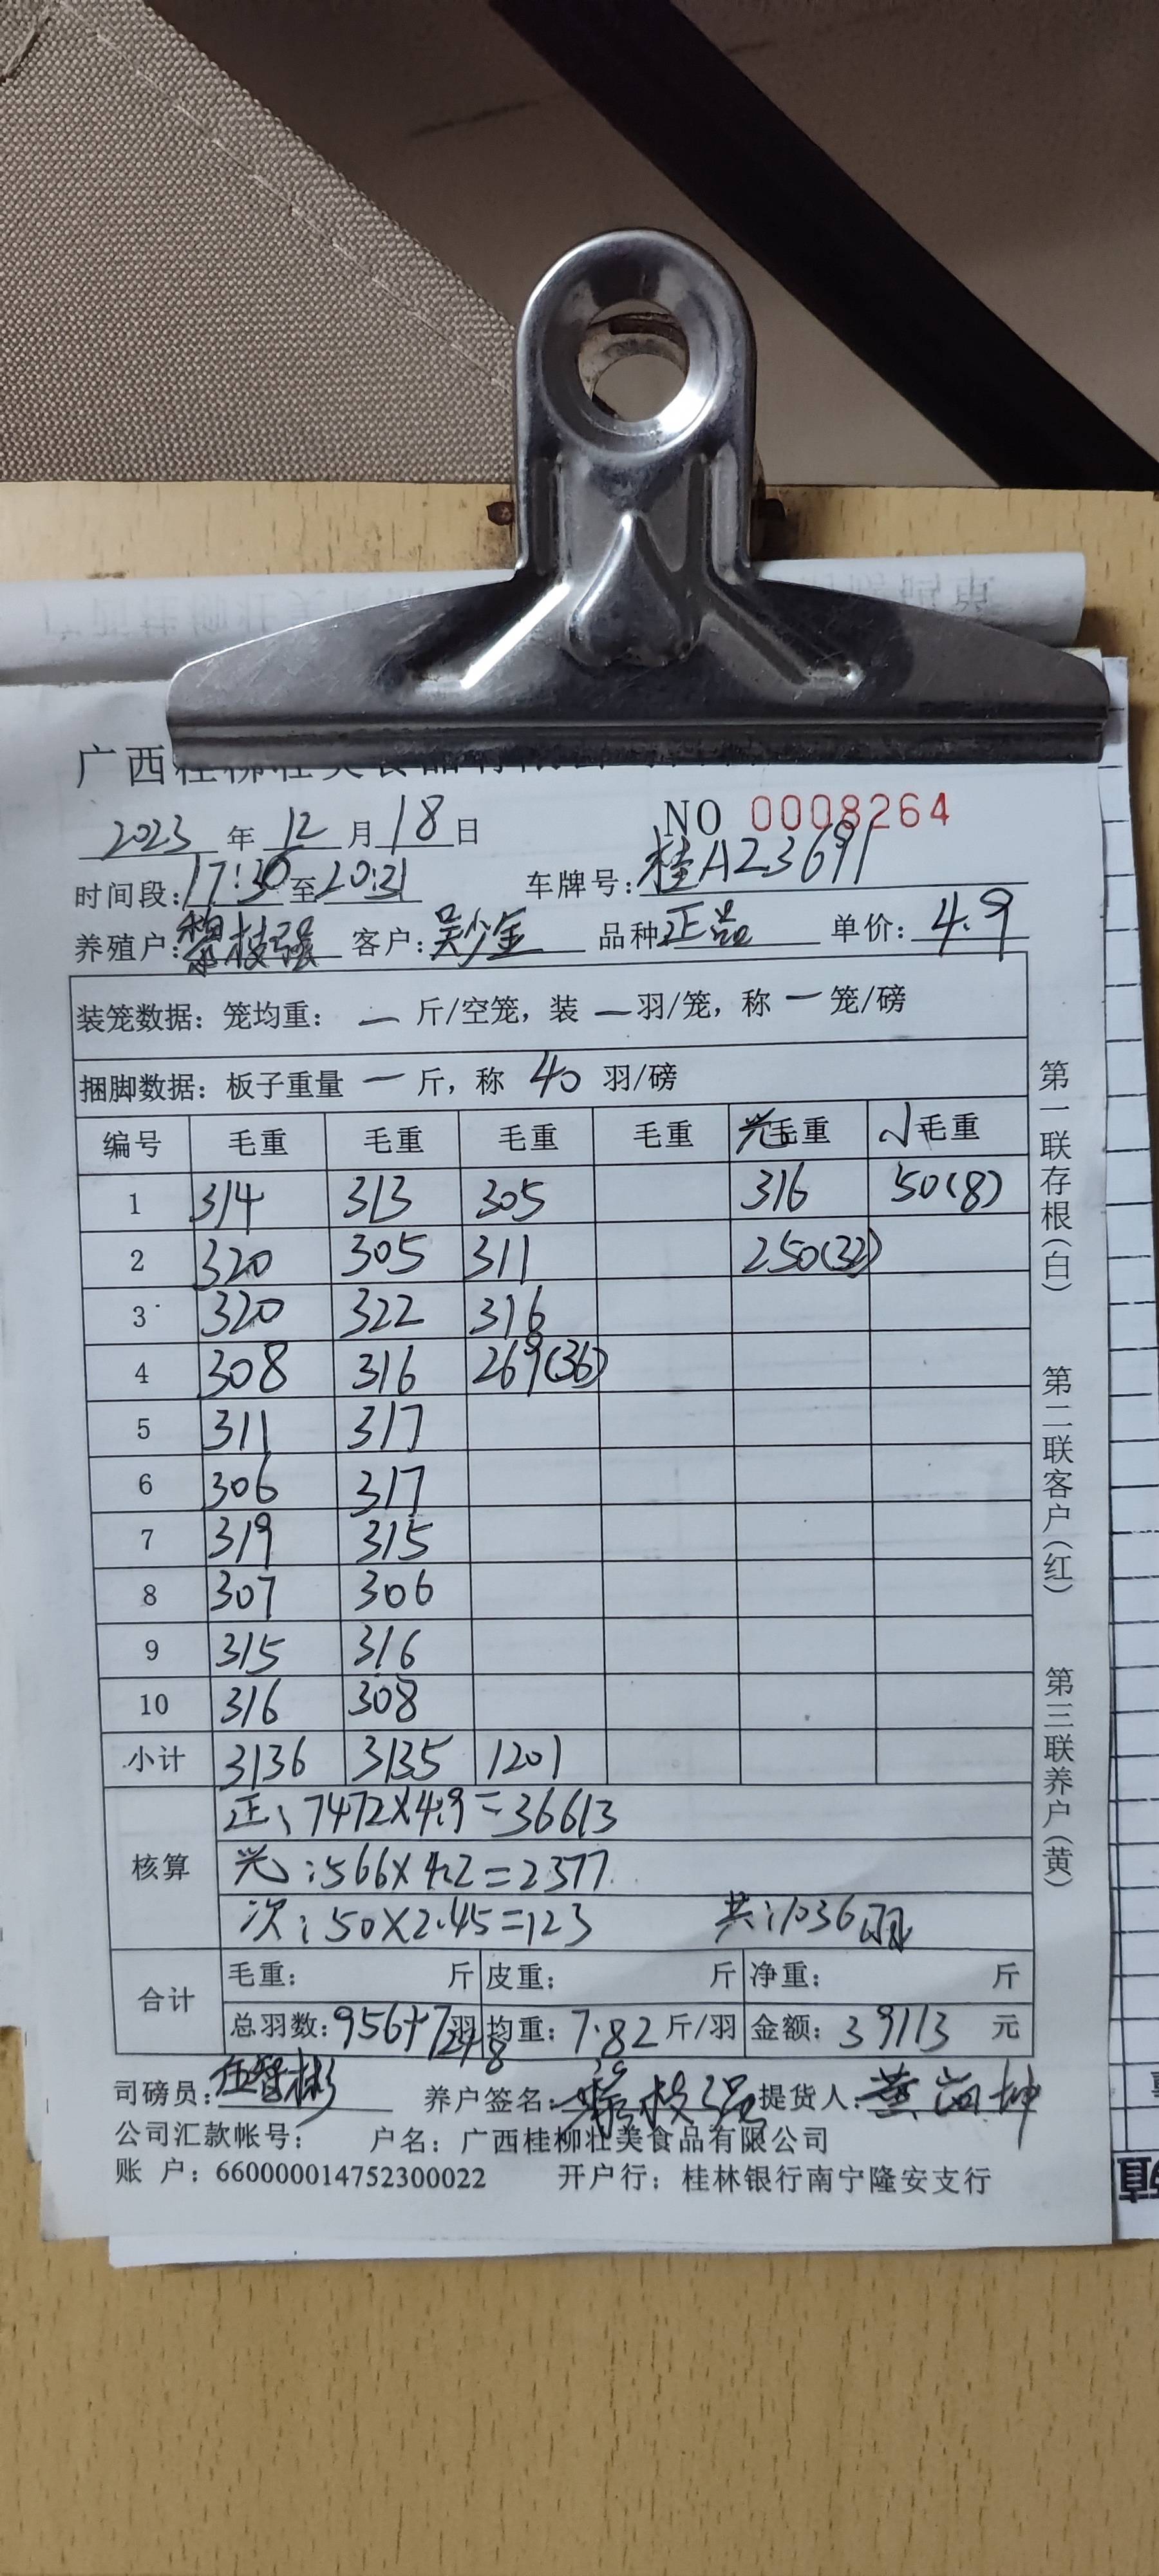 广西桂柳壮美食品有限公司
NO 0008264
2023 年 12 月 18 日
时间段: 17:30 至 20:31 车牌号: 桂A23691
养殖户: 黎枝强 客户: 吴少金 品种 正品 单价: 4.9
装笼数据: 笼均重: 一 斤/空笼, 装 一 羽/笼, 称 一 笼/磅
捆脚数据: 板子重量 一 斤, 称 40 羽/磅
编号 毛重 毛重 毛重 毛重 光毛重 小毛重
1 314 313 305 316 50(8)
2 320 305 311 250(32)
3 320 322 316
4 308 316 269(36)
5 311 317
6 306 317
7 319 315
8 307 306
9 315 316
10 316 308
小计 3136 3135 1201
正、7472×4.9=36613
核算 光:566×4.2=2377
次:50×2.45=123 共:1036羽
合计 毛重: 斤 皮重: 斤 净重: 斤
总羽数: 956+72+8 羽 均重: 7.82 斤/羽 金额: 39113 元
司磅员: 伍智彬 养户签名: 黎枝强 提货人:
公司汇款帐号: 户名: 广西桂柳壮美食品有限公司
账 户: 660000014752300022 开户行: 桂林银行南宁隆安支行
第一联存根(白) 第二联客户(红) 第三联养户(黄)
值